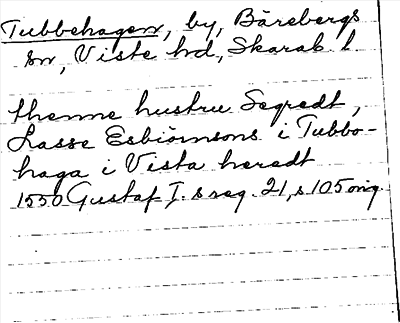 Tubbehagen, by, Bärebergs
sn, Viste hd, Skarab. l.
thenne hustru Segredt,
Lasse Esbiörnsons i Tubbo-
haga i Vista heredt
1550 Gustaf I.s reg. 21, s 105 orig.